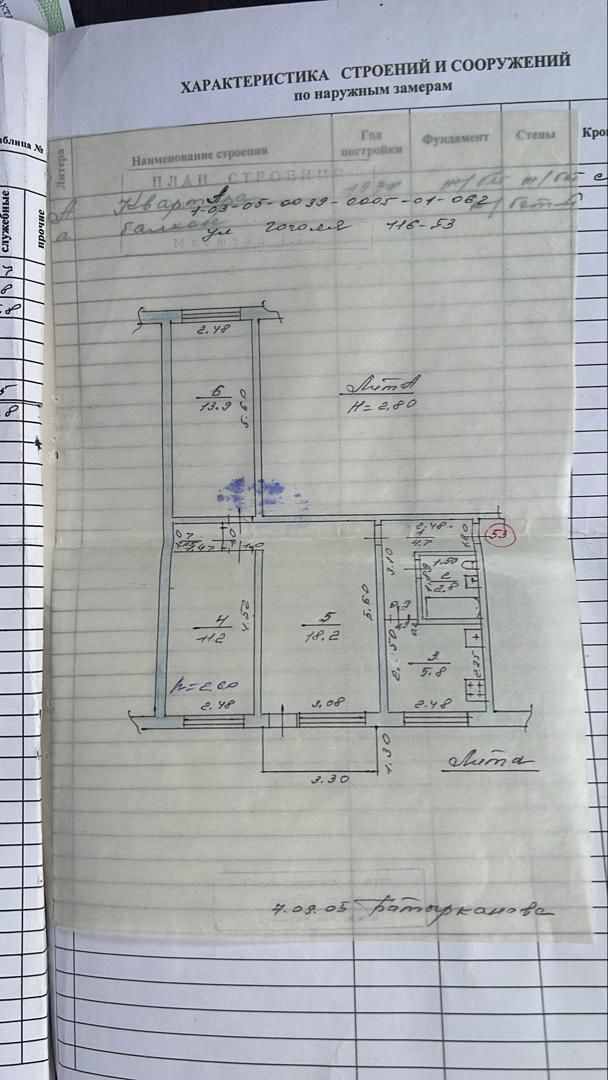 ХАРАКТЕРИСТИКА СТРОЕНИЙ И СООРУЖЕНИЙ
по наружным замерам
Литера
Наименование строения
Год постройки
Фундамент
Стены
Кро
аблица №
служебные
прочие
ПЛАН СТРОЕНИЯ
А Квартира
а балкон
1-03-05-0039-0005-01-062
ул гоголя 116-53
2.48
6
13.9
5.60
Лит А
H=2.80
2.48
1
4.7
1.80
53
1.47
3.10
1.50
2
2.8
4
11.2
4.52
5
18.2
5.60
2.50
3
5.8
2.25
h=2.60
2.48
3.08
2.48
3.30
1.30
Лит а
7.09.05 Батырканова